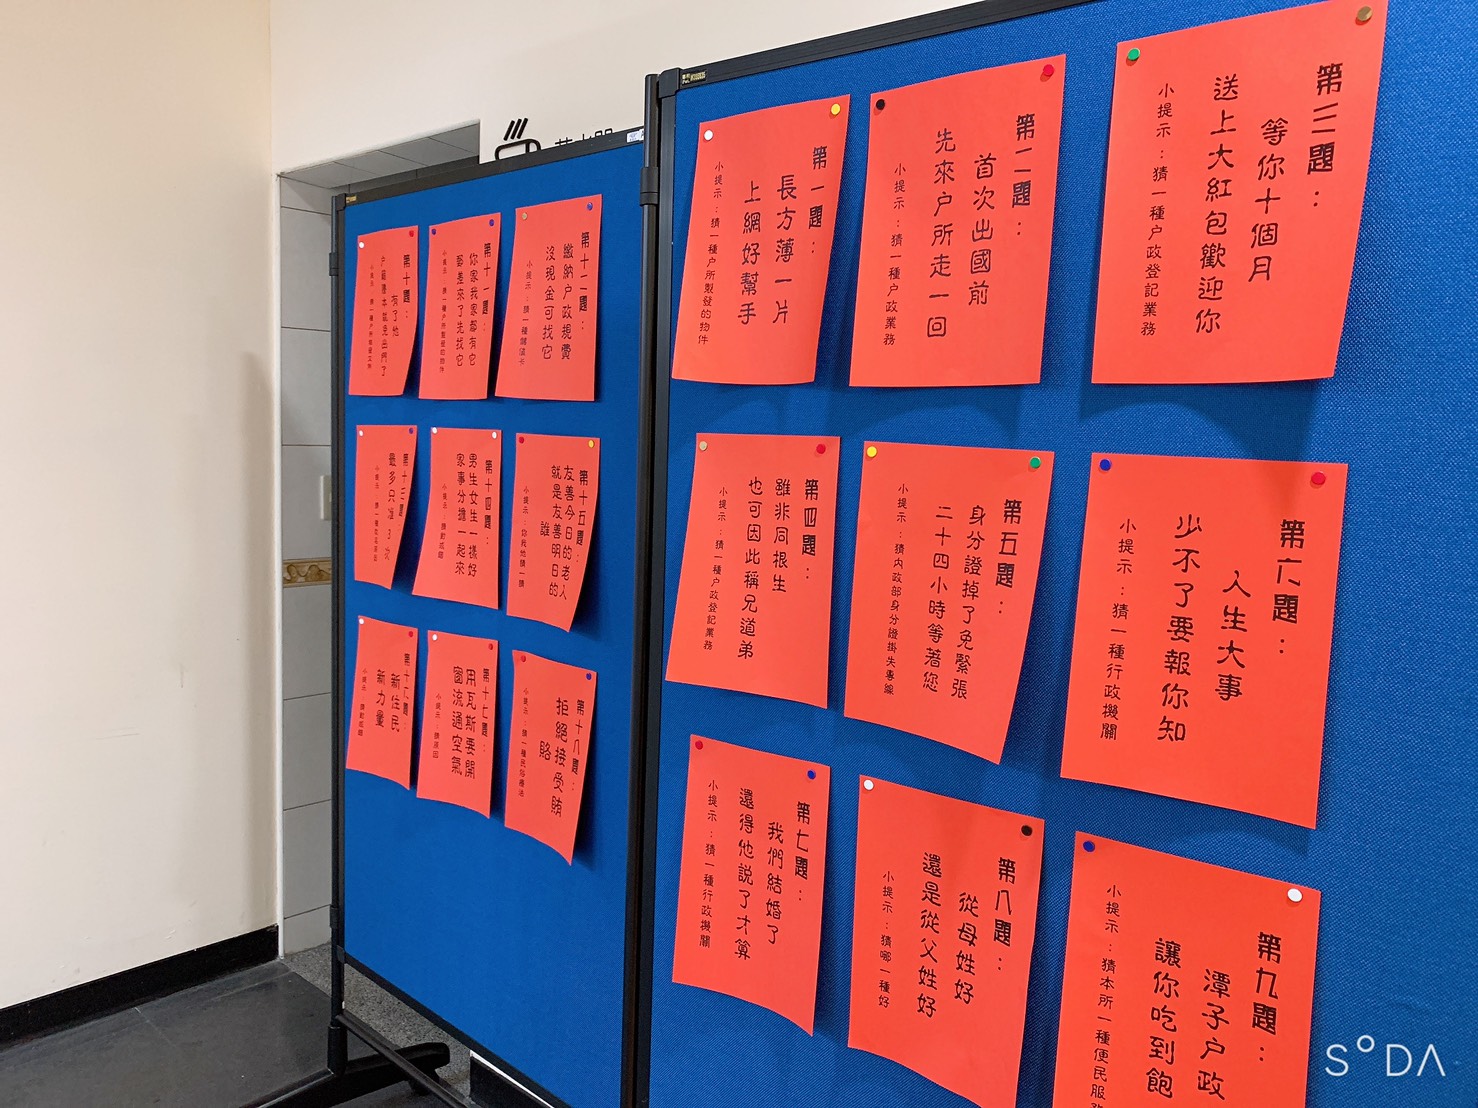 第一題：
長方薄一片
上網好幫手
小提示：猜一種戶所製發的物件
第二題：
首次出國前
先來戶所走一回
小提示：猜一種戶政業務
第三題：
等你十個月
送上大紅包歡迎你
小提示：猜一種戶政登記業務
第四題：
雖非同根生
也可因此稱兄道弟
小提示：猜一種戶政登記業務
第五題：
身分證掉了免緊張
二十四小時等著您
小提示：猜內政部身分證掛失專線
第六題：
人生大事
少不了要報你知
小提示：猜一種行政機關
第七題：
我們結婚了
還得他說了才算
小提示：猜一種行政機關
第八題：
從母姓好
還是從父姓好
小提示：猜哪一種好
第九題：
潭子戶政
讓你吃到飽
小提示：猜本所一種便民服務
第十題：
有了他
戶籍謄本就免出門了
第十一題：
你家我家都有它
郵差來了先找它
小提示：猜一種戶所製發的物件
第十二題：
繳納戶政規費
沒現金可找它
小提示：猜一種儲值卡
第十三題：
最多只准3次
第十四題：
男生女生一樣好
家事分擔一起來
小提示：猜釣成語
第十五題：
友善今日的老人
就是友善明日的
誰
小提示：你我他猜一猜
第十六題：
新住民
新力量
第十七題：
用瓦斯要開
窗流通空氣
小提示：猜原因
第十八題：
拒絕接受賄
賂
小提示：猜一種民俗療法
SODA